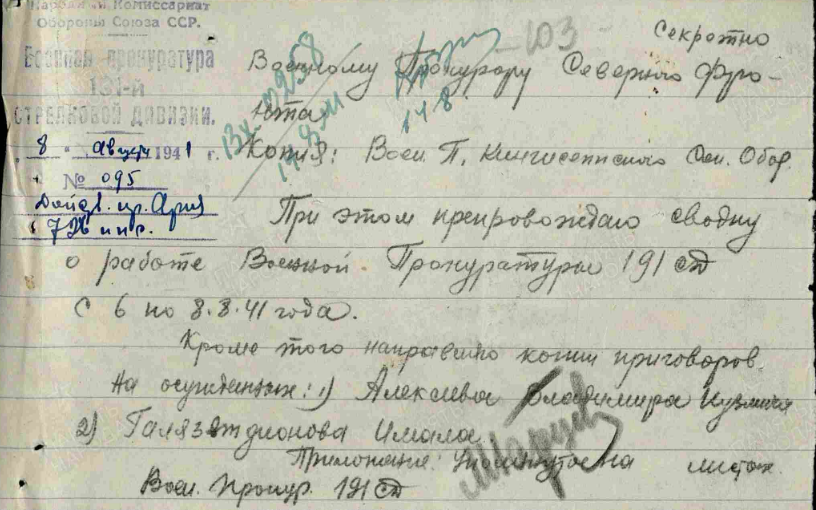 Народный Комиссариат
Обороны Союза ССР.
Военная прокуратура
191-й
СТРЕЛКОВОЙ ДИВИЗИИ.
"8" август 1941 г.
№ 095
Дейст. кр. Армия
Секретно
103
Военному Прокурору Северного Фро-
нта
Вх. 02958
14 8
Копия: Воен. П. Кингисеппского Обор.
При этом препровождаю сводку
о работе Военной Прокуратуры 191 сд
с 6 по 8.8.41 года.
Кроме того направляю копии приговоров
на осужденных: 1) Алексеева Владимира Кузмича
2) Галязетдионова Имала
Приложение: Упомянутое на листах.
Воен. Прокур. 191 сд